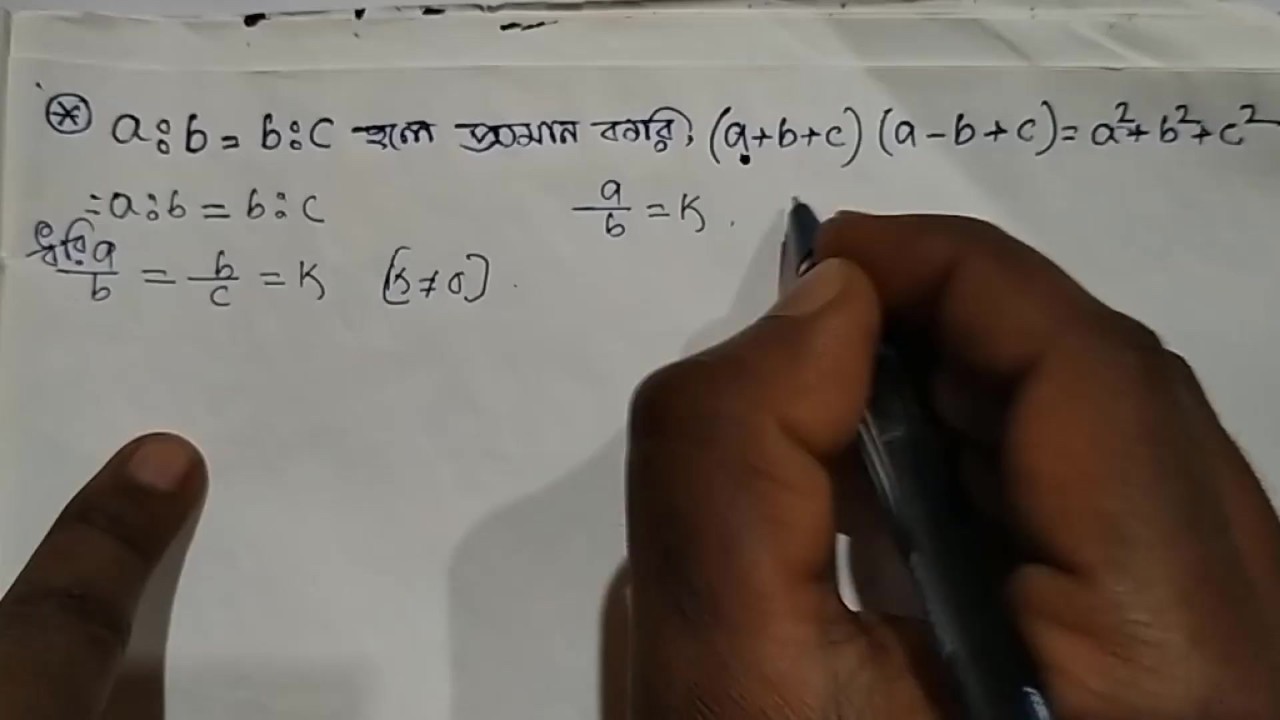 ⊛ a:b = b:c হলে প্রমান করি, (a+b+c) (a-b+c)= a²+b²+c²
=a:b = b:c
a/b = K.
ধরি a/b = b/c = K [K≠0].